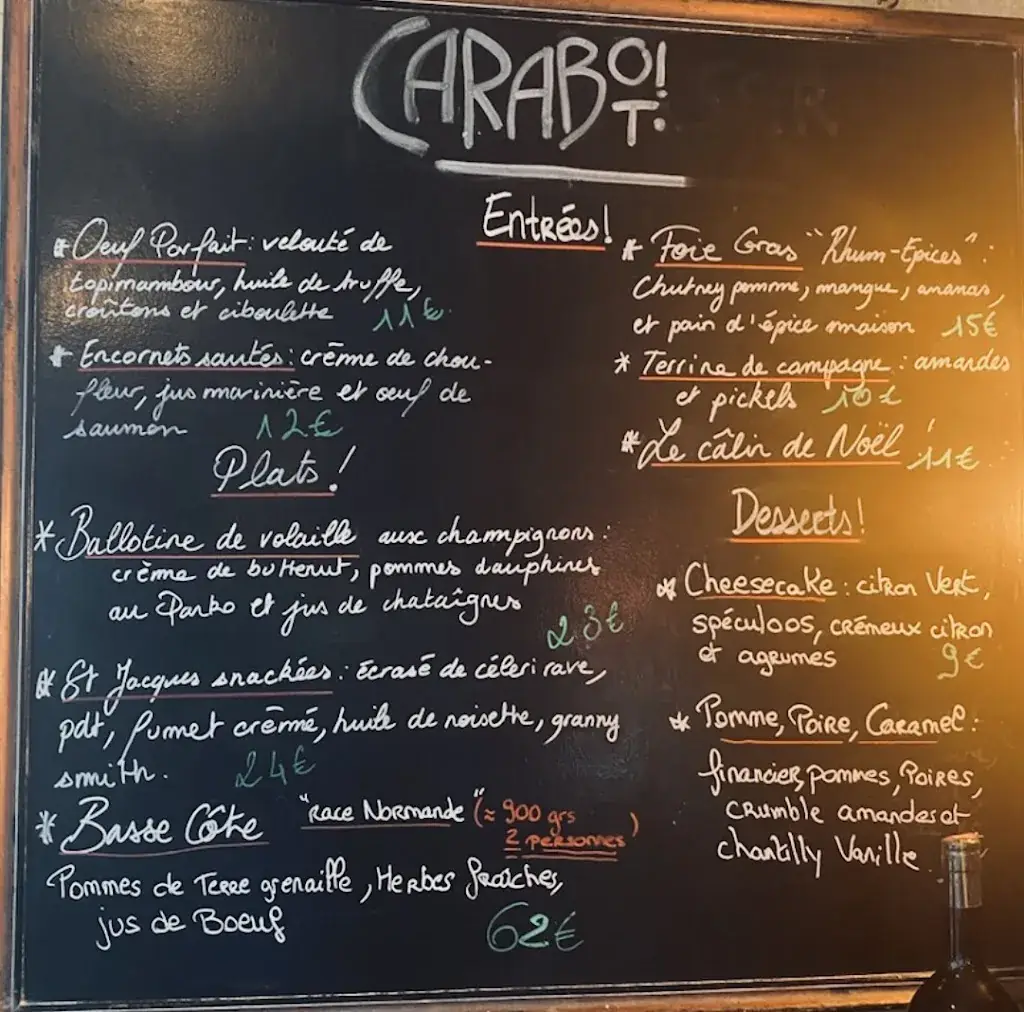 CARABOT!
Entrées!
* Oeuf Parfait : velouté de
topinambour, huile de truffe,
croûtons et ciboulette 11€
* Encornets sautés : crème de chou-
fleur, jus marinière et oeuf de
saumon 12€
* Foie Gras "Rhum-Épices" :
Chutney pomme, mangue, ananas,
et pain d'épice maison 15€
* Terrine de campagne : amandes
et pickels 10€
* Le câlin de Noël ! 11€
Plats!
* Ballotine de volaille aux champignons :
crème de butternut, pommes dauphines
au Panko et jus de chataîgnes
23€
* St Jacques snackées : écrasé de céleri rave,
pdt, fumet crèmé, huile de noisette, granny
smith. 24€
* Basse Côte "Race Normande" (≈ 900 grs
2 personnes)
Pommes de Terre grenaille, Herbes fraîches,
jus de Boeuf 62€
Desserts!
* Cheesecake : citron Vert,
spéculoos, crémeux citron
et agrumes 9€
* Pomme, Poire, Caramel :
financier, pommes, Poires,
crumble amandes et
chantilly Vanille